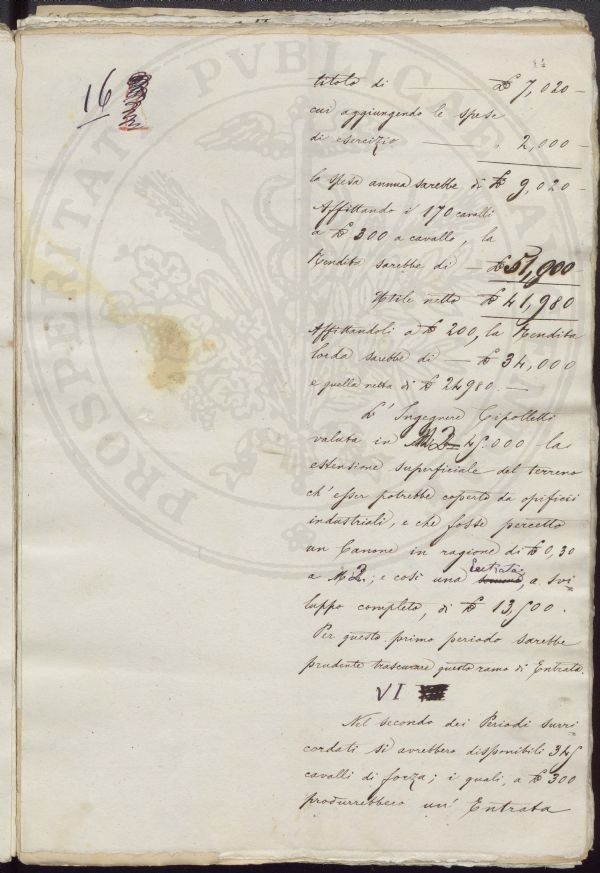 16
titolo di £ 7,020 –
cui aggiungendo le spese
di esercizio „ 2,000 –
la spesa annua sarebbe di £ 9,020 –
Affittando i 170 cavalli
a £ 300 a cavallo, la
Rendita sarebbe di — £ 51,000 –
Utile netto £ 41,980
Affittandoli a £ 200, la Rendita
lorda sarebbe di — £ 34,000
e quella netta di £ 24980. —
L' Ingegnere Cipolletti
valuta in M2 45.000 la
estensione superficiale del terreno
ch' esser potrebbe coperto da opificii
industriali, e che fosse percetto
un Canone in ragione di £ 0,30
a M2.; e così una Entrata, a svi-
luppo completo, di £ 13,500.
Per questo primo periodo sarebbe
prudente trascurare questo ramo di Entrata.
VI
Nel secondo dei Periodi surri
cordati si avrebbero disponibili 345
cavalli di forza; i quali, a £ 300
produrrebbero un' Entrata